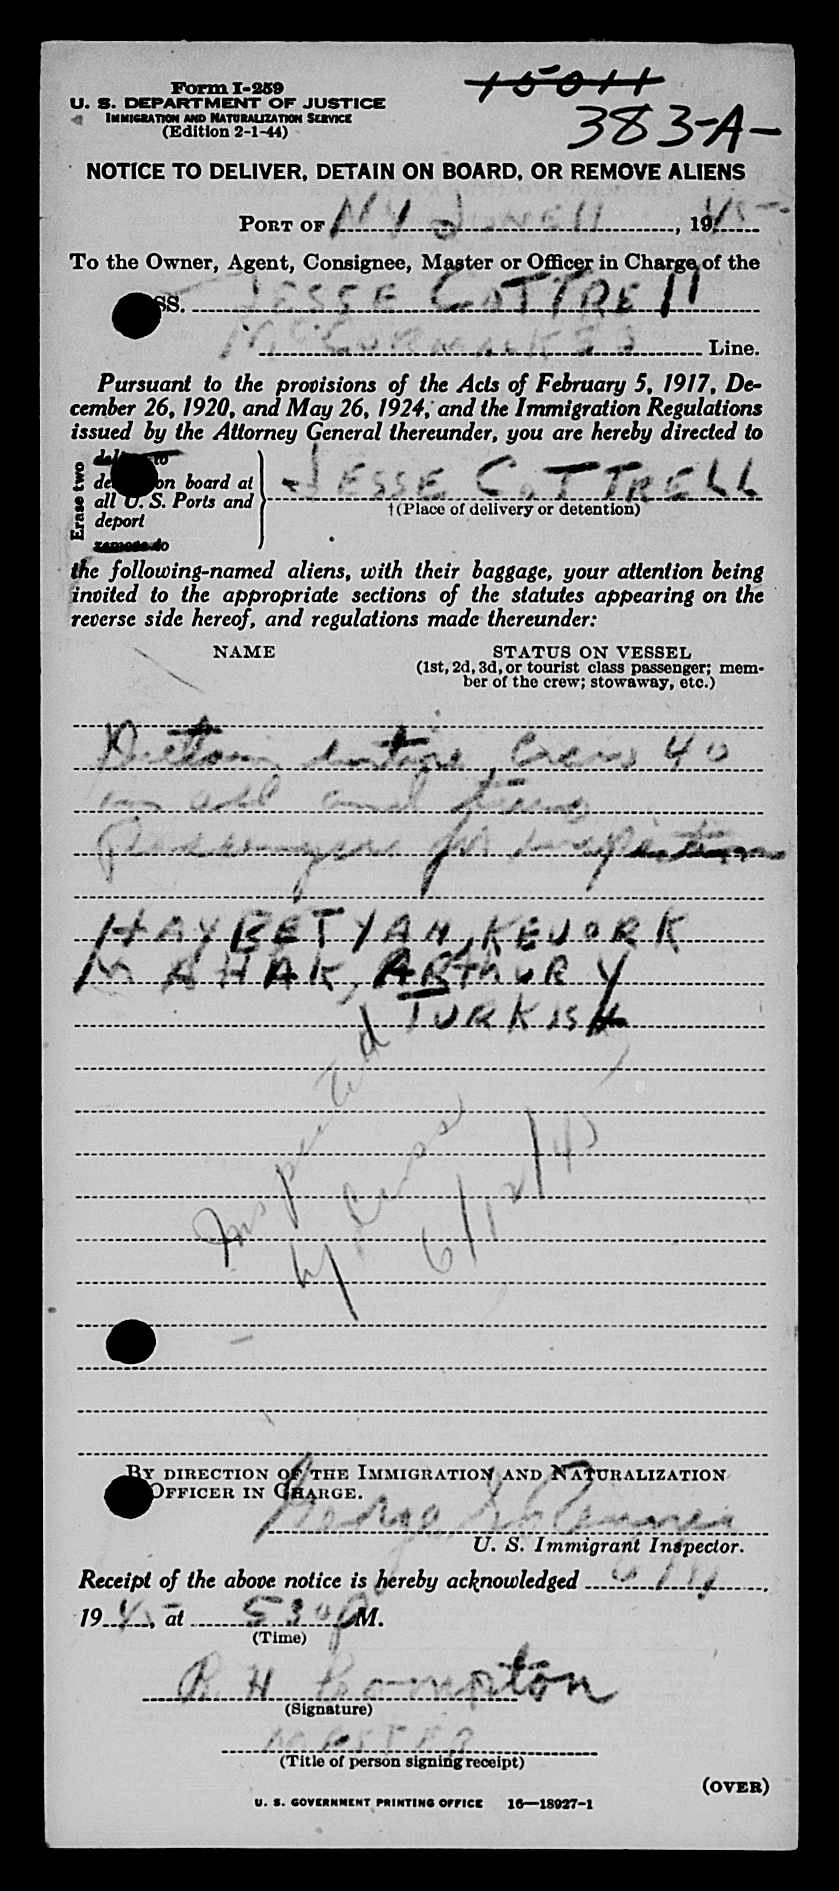 Form I-259
U. S. DEPARTMENT OF JUSTICE
IMMIGRATION AND NATURALIZATION SERVICE
(Edition 2-1-44)
15011
383-A-
NOTICE TO DELIVER, DETAIN ON BOARD, OR REMOVE ALIENS
PORT OF NY June 11, 1945
To the Owner, Agent, Consignee, Master or Officer in Charge of the
SS. JESSE COTTRELL
Line.
Pursuant to the provisions of the Acts of February 5, 1917, De-
cember 26, 1920, and May 26, 1924, and the Immigration Regulations
issued by the Attorney General thereunder, you are hereby directed to
Erase two
on board at
all U. S. Ports and
deport
JESSE COTTRELL
†(Place of delivery or detention)
the following-named aliens, with their baggage, your attention being
invited to the appropriate sections of the statutes appearing on the
reverse side hereof, and regulations made thereunder:
NAME STATUS ON VESSEL
(1st, 2d, 3d, or tourist class passenger; mem-
ber of the crew; stowaway, etc.)
Detain entire crew 40
in all and two
passengers for inspection
HAYBETYAN, KEVORK
MAHAK, ARTHUR Y
TURKISH
Inspected
by
6/12/45
BY DIRECTION OF THE IMMIGRATION AND NATURALIZATION
OFFICER IN CHARGE.
George
U. S. Immigrant Inspector.
Receipt of the above notice is hereby acknowledged 6/11,
1945, at 530 P M.
(Time)
R H Bompton
(Signature)
MASTER
(Title of person signing receipt)
(OVER)
U. S. GOVERNMENT PRINTING OFFICE 16—18927-1